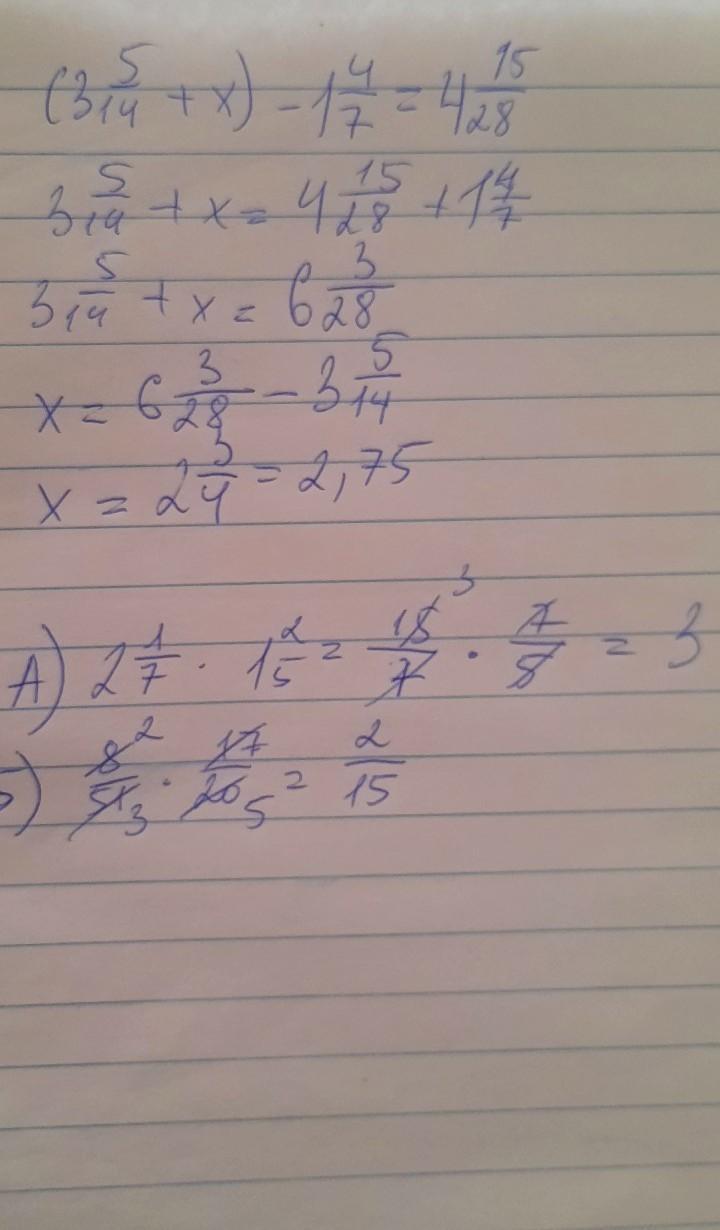 (3 5/14 + x) - 1 4/7 = 4 15/28
3 5/14 + x = 4 15/28 + 1 4/7
3 5/14 + x = 6 3/28
x = 6 3/28 - 3 5/14
x = 2 3/4 = 2,75
A) 2 1/7 · 1 2/5 = 15/7 · 7/5 = 3
8/51 · 17/20 = 2/15